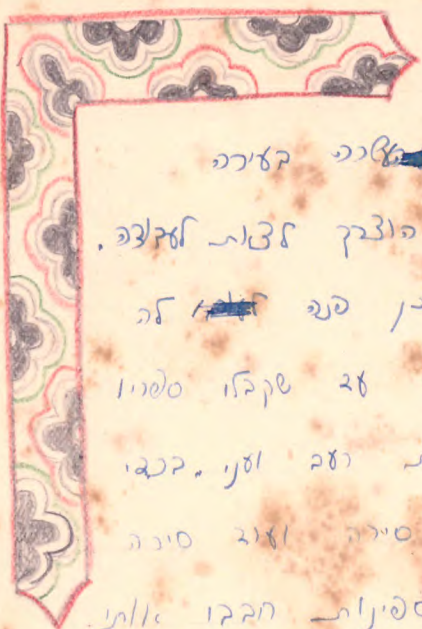 העשרה בעירה
הוצרך לצאת לעבודה.
פנה לה
עד שקבלו ספריו
רעב ועני. בכדי
סירה ועוד סירה
ספינות חבבו אותי